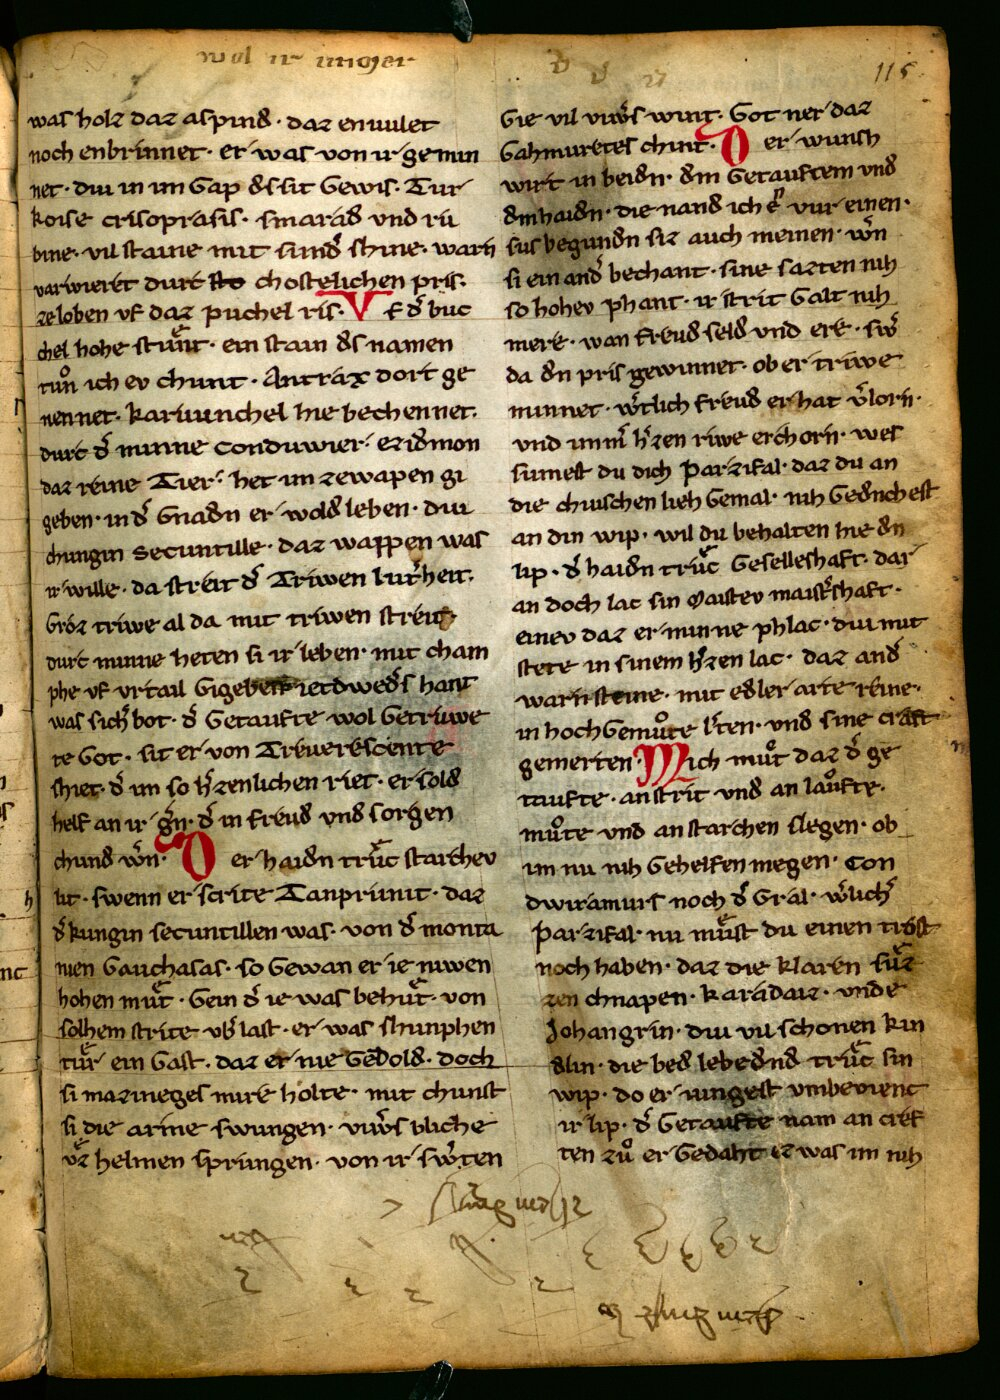 wol ir iunger
115
was holz daz aspind · daz en uulet
noch enbrinnet · er was von ir gemin
net · diu in im Gap ds sit Gewis · Tur
koise crisoprasis · smarad vnd ru
bine · vil staine mit sund̄ shine · warn
varwieret durc chostelichen pris ·
ze loben vf daz puchel ris · V f d̄ buc
chel hohe stunt · ein stain ds namen
tuͦn ich ev chunt · Antrax dort ge
nennet · karuunchel hie bechennet ·
durc d̄ minne conduwier · ezidmon
daz reine Tier · het im ze wapen gi
geben · in d̄ Gnadn er wold leben · diu
chungin Secuntille · daz wappen was
ir wille · da streit d̄ Triwen lut̄heit ·
Groz triwe al da mit triwen streit ·
durc minne heten si ir leben · mit cham
phe vf vrtail Gigeben ietdweds hant
was sich̄ bot · d̄ Getaufte wol Getriuwe
te Got · sit er von Treverescente
shiet · d̄ im so h̄zenlichen riet · er sold
helf an ir ḡn · d̄ in freud vnd sorgen
chund w̄n · D er haidn truc starchev
lit · swenn er scrite Tanprunit · daz
d̄ kungin secuntillen was · von d̄ monta
nien Gauchasas · so Gewan er ie niwen
hohen mut · Gein d̄ ie was behut · von
solhem strite vb̄ last · er was shunphen
tur ein Gast · daz er nie Gedold · doch
si marzinegel mirke holte · mit chunst
si die arme swungen · viwr̄s bliche
vz helmen sprungen · von ir sw̄ten
Gie vil viwr̄s wint · Got ner daz
Gahmuretes chint · D er wunsh
wirt in beidn · dm Getauftem vnd
dm haidn · die nand ich e vur einen ·
sus begundn siz auch meinen · w̄n
si ein and̄ bechant · sine sazten nih
so hohev phant · ir strit Galt nih
mere · wan freud seld vnd ere · sw̄
da dn pris gewinnet · ob er triwe
minnet · w̄tlich freud er hat v̄lorn ·
vnd imm̄ h̄zen riwe erchorn · wes
sumest du dich parzifal · daz du an
die chiuschen lieh Gemal · nih Gednchest
an din wip · wil du behalten hie dn
lip · d̄ haidn truc Geselleshaft · dar
an doch lac sin maistev maist̄shaft ·
einev daz er minne phlac · diu mit
stete in sinem h̄zen lac · daz and̄
warn steine · mit edler arte reine ·
in hoch Gemuͦte l̄ten · vnd sine craft
gemerten · Mich muͦt daz d̄ ge
taufte · an strit vnd an lauͦfte ·
muͦte vnd an starchen slegen · ob
im nu nih Gehelfen megen · Con
dwiramurs noch d̄ Gral · w̄lich̄
Parzifal · nu must du einen trost
noch haben · daz die klaren suz
zen chnapen · karadaiz · vnde
Johangrin · diu vil schonen kin
dlin · die bed lebednd truc sin
wip · do er iungest vmbevienc
ir lip · d̄ Getaufte nam an cref
ten zuͦ er Gedaht ez was im nih